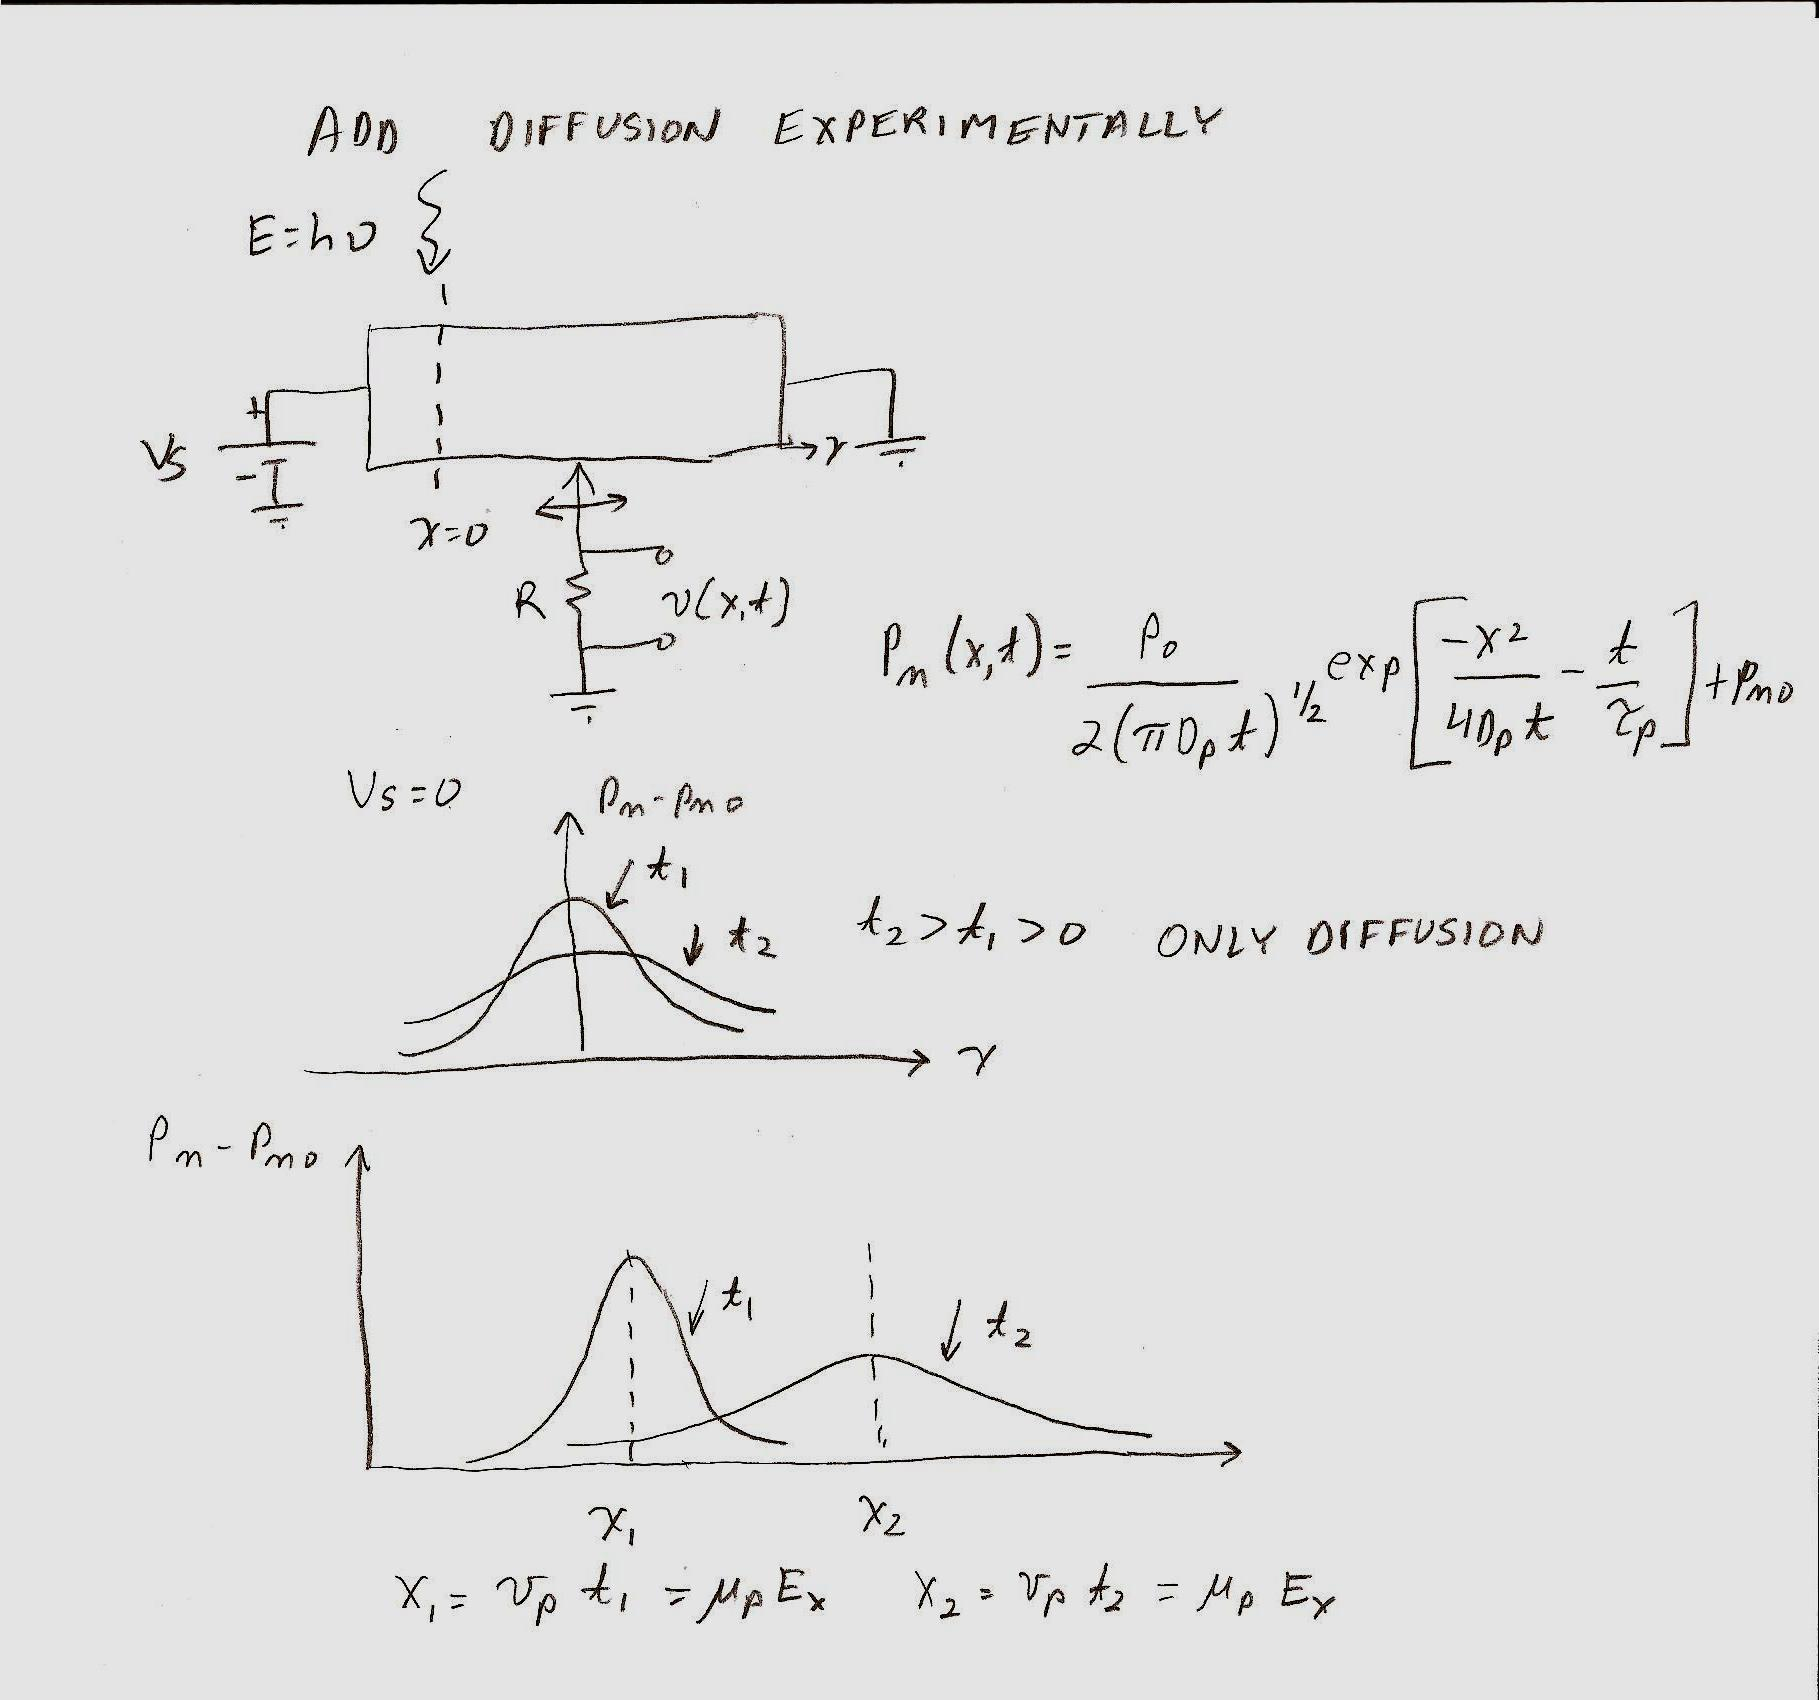 ADD DIFFUSION EXPERIMENTALLY
E=hν
+
Vs
-
x
x=0
R
v(x,t)
Pn(x,t)= P0 / 2(πDpt)^1/2 exp[-x²/4Dpt - t/τp]+Pno
Vs=0
Pn-Pno
t1
t2
t2>t1>0 ONLY DIFFUSION
x
Pn-Pno
t1
t2
x1
x2
x1= vp t1 = μp Ex x2= vp t2 = μp Ex